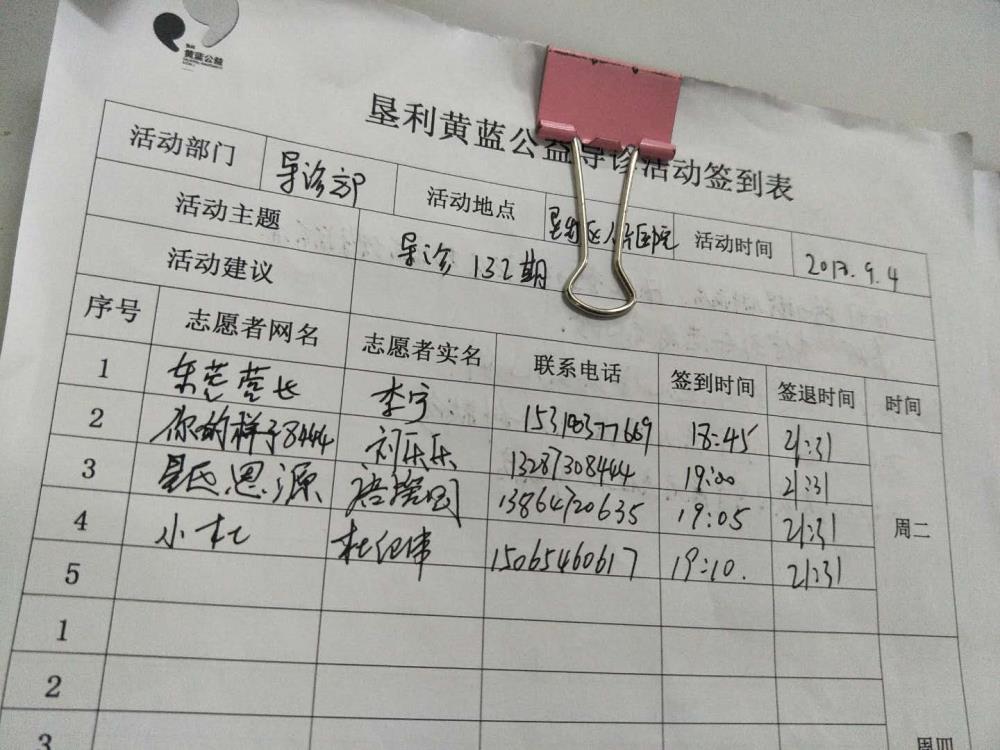 黄蓝公益
垦利黄蓝公益导诊活动签到表
活动部门 导诊部 活动地点 垦利区人民医院 活动时间 2017.9.4
活动主题 导诊132期
活动建议
序号 志愿者网名 志愿者实名 联系电话 签到时间 签退时间 时间
1 东莞莞长 李宁 15318377669 18:45 21:31
2 你的样子8444 刘乐乐 13287308444 19:00 21:31
3 恩源 13864720635 19:05 21:31 周二
4 小杜 杜纪伟 15065460617 19:10. 21:31
5
1
2
3 周四